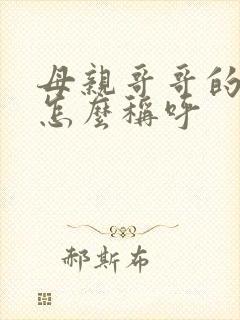 母親哥哥的
怎麼稱呼
郝斯布